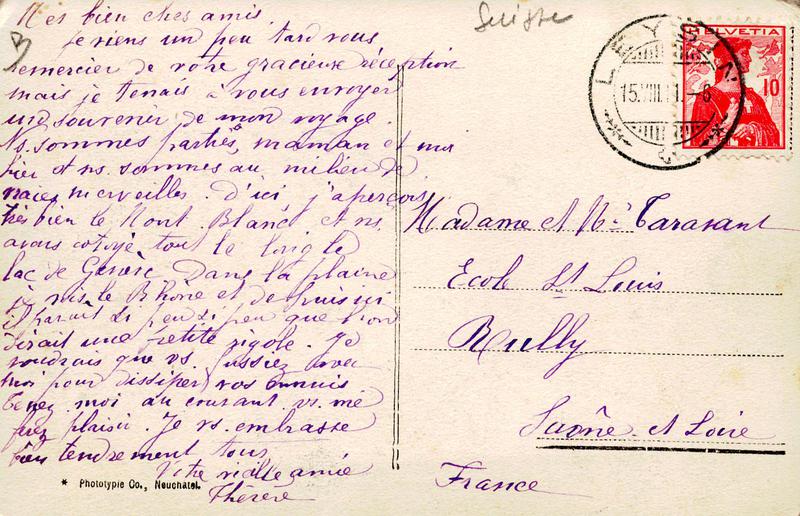 Mes bien chers amis
Je viens un peu tard vous
remercier de votre gracieuse réception
mais je tenais à vous envoyer
un souvenir de mon voyage.
Ns. sommes parties, maman et moi
hier et ns. sommes au milieu de
vraies merveilles. D'ici j'aperçois
très bien le Mont Blanc et ns.
avons cotoyé tout le long le
lac de Genève Dans la plaine
je vois le Rhône et de puis ici
il parait si peu si peu que l'on
dirait une petite rigole. Je
voudrais que vs. fussiez avec
moi pour dissiper vos ennuis
Tenez moi au courant vs. me
ferez plaisir. Je vs. embrasse
bien tendrement tous
Votre vieille amie
Thérèse
* Phototypie Co., Neuchatel.
B
Suisse
LEYSIN
15.VIII.11.-6
HELVETIA
10
Madame et Mr Taravant
Ecole St Louis
Rully
Saône et Loire
France